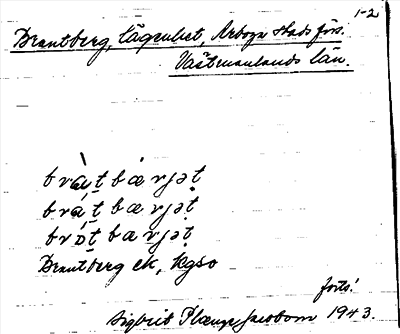 1-2
Brantberg, lägenhet, Arboga stads förs.
Västmanlands län.
brà̤t bærjət̩
brá̤t bærjət̩
brɔ́t bærjət̩
Brantberg ek, kgso
forts!
Sigbrit Jacobson 1943.